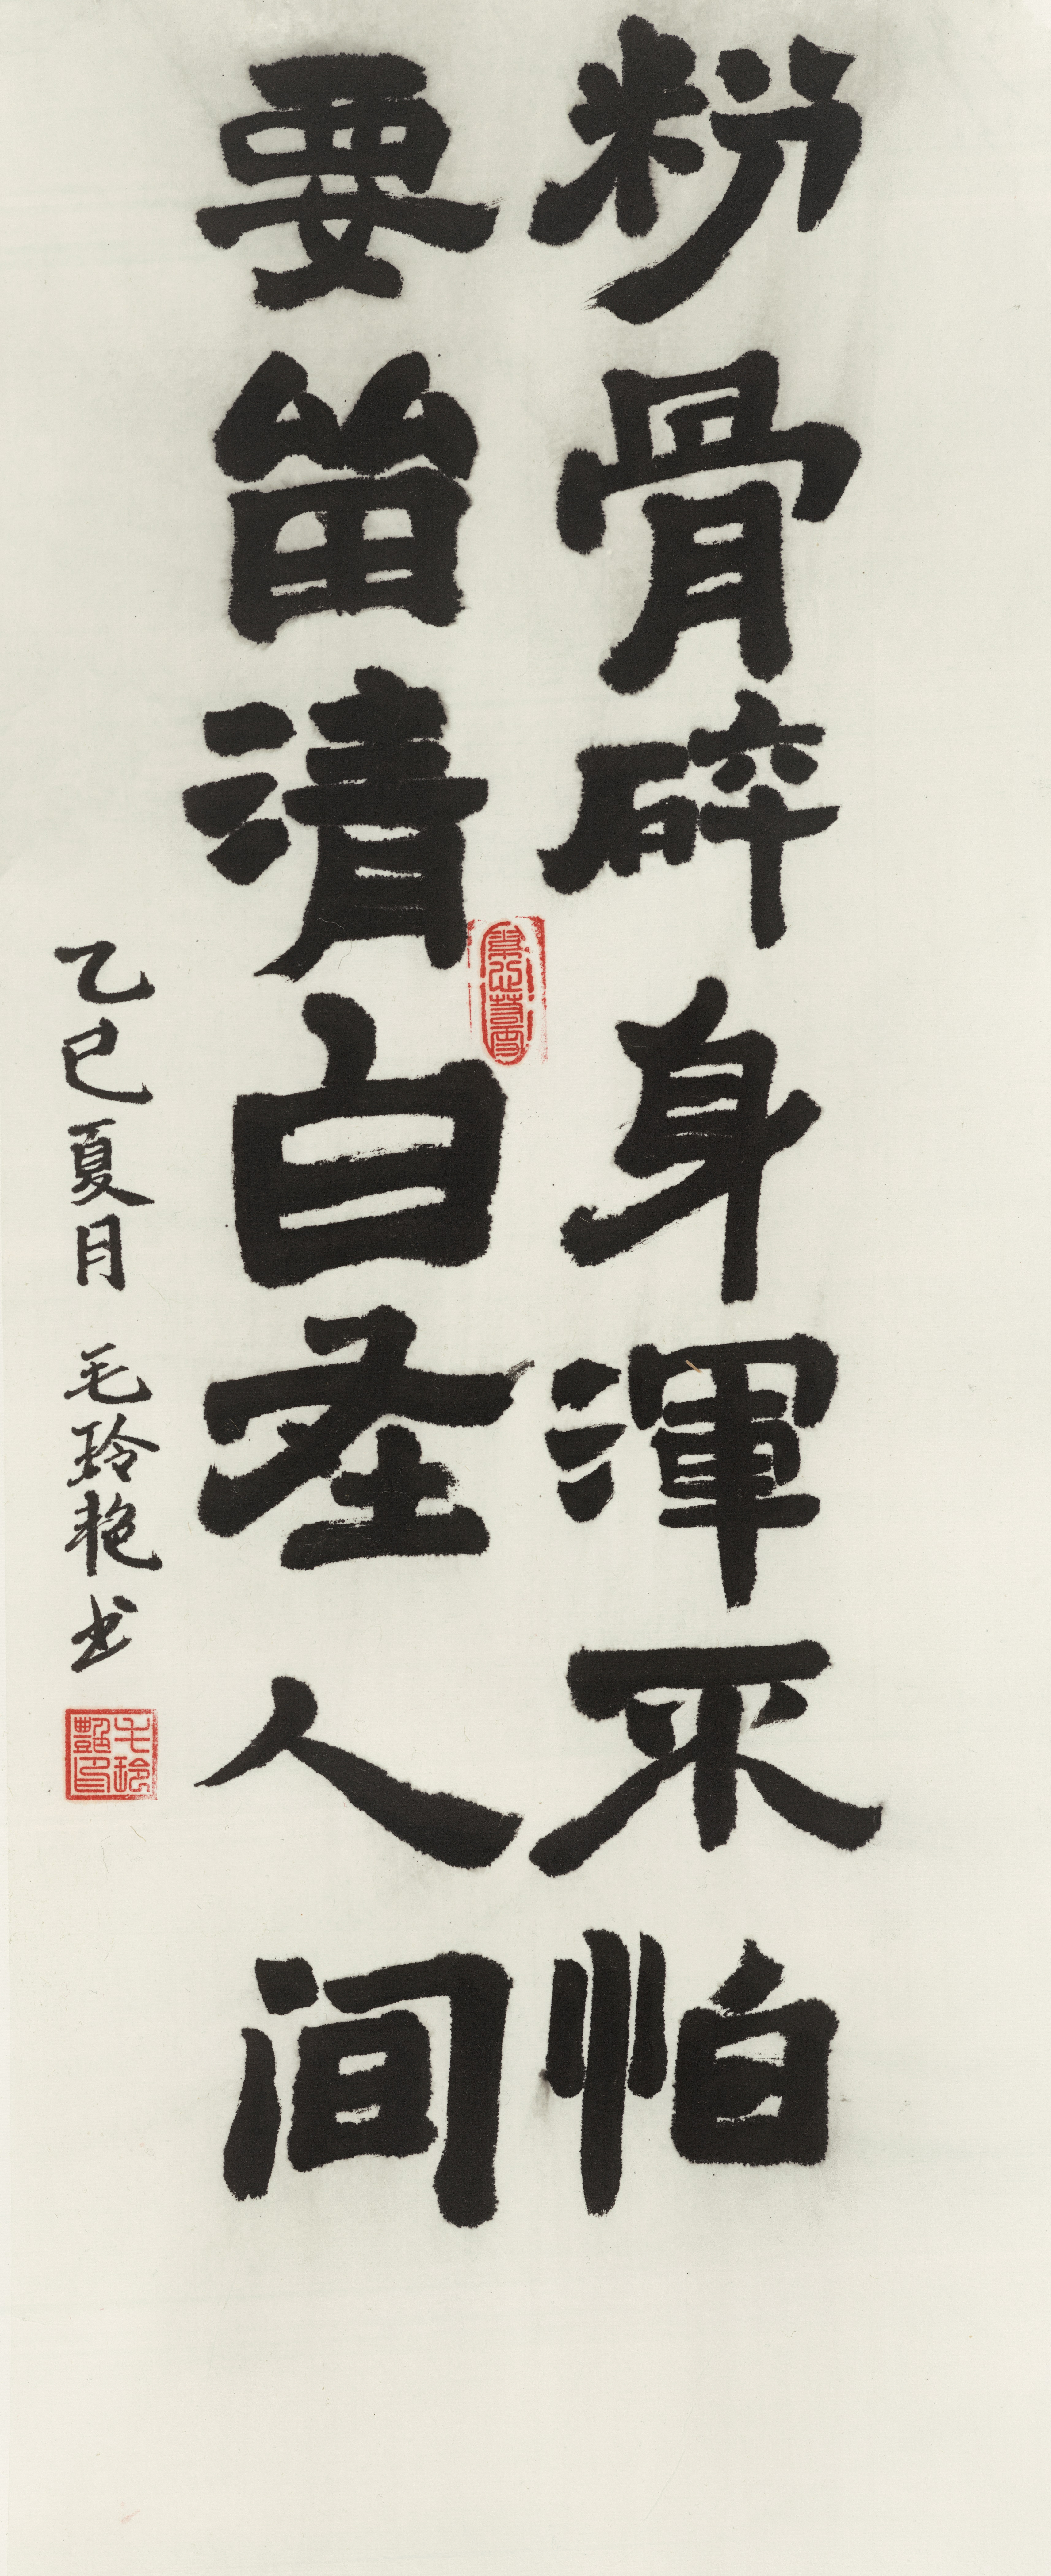 粉骨碎身渾不怕
要留清白在人间
乙巳夏月 毛玲艳书
毛玲艷印